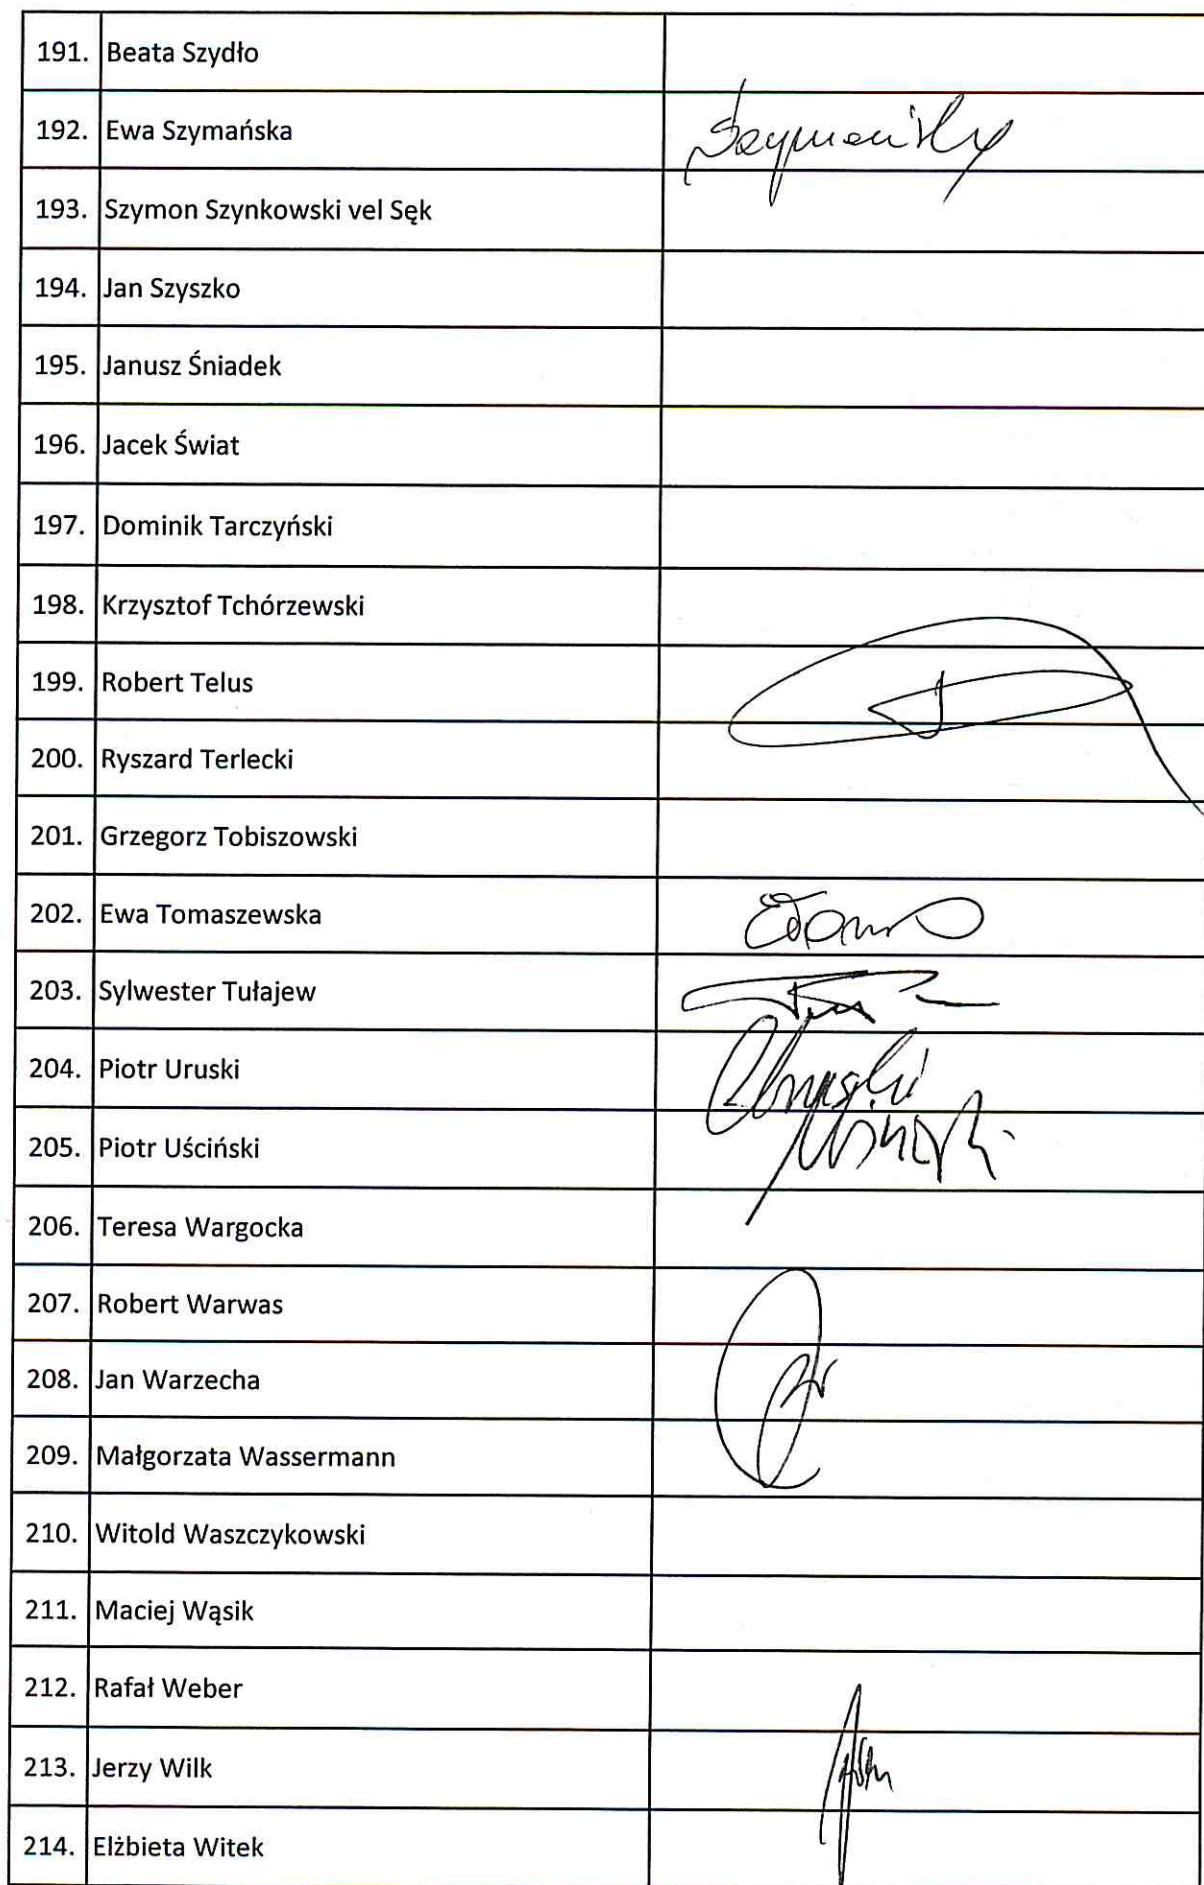 191. Beata Szydło
192. Ewa Szymańska
193. Szymon Szynkowski vel Sęk
194. Jan Szyszko
195. Janusz Śniadek
196. Jacek Świat
197. Dominik Tarczyński
198. Krzysztof Tchórzewski
199. Robert Telus
200. Ryszard Terlecki
201. Grzegorz Tobiszowski
202. Ewa Tomaszewska
203. Sylwester Tułajew
204. Piotr Uruski
205. Piotr Uściński
206. Teresa Wargocka
207. Robert Warwas
208. Jan Warzecha
209. Małgorzata Wassermann
210. Witold Waszczykowski
211. Maciej Wąsik
212. Rafał Weber
213. Jerzy Wilk
214. Elżbieta Witek